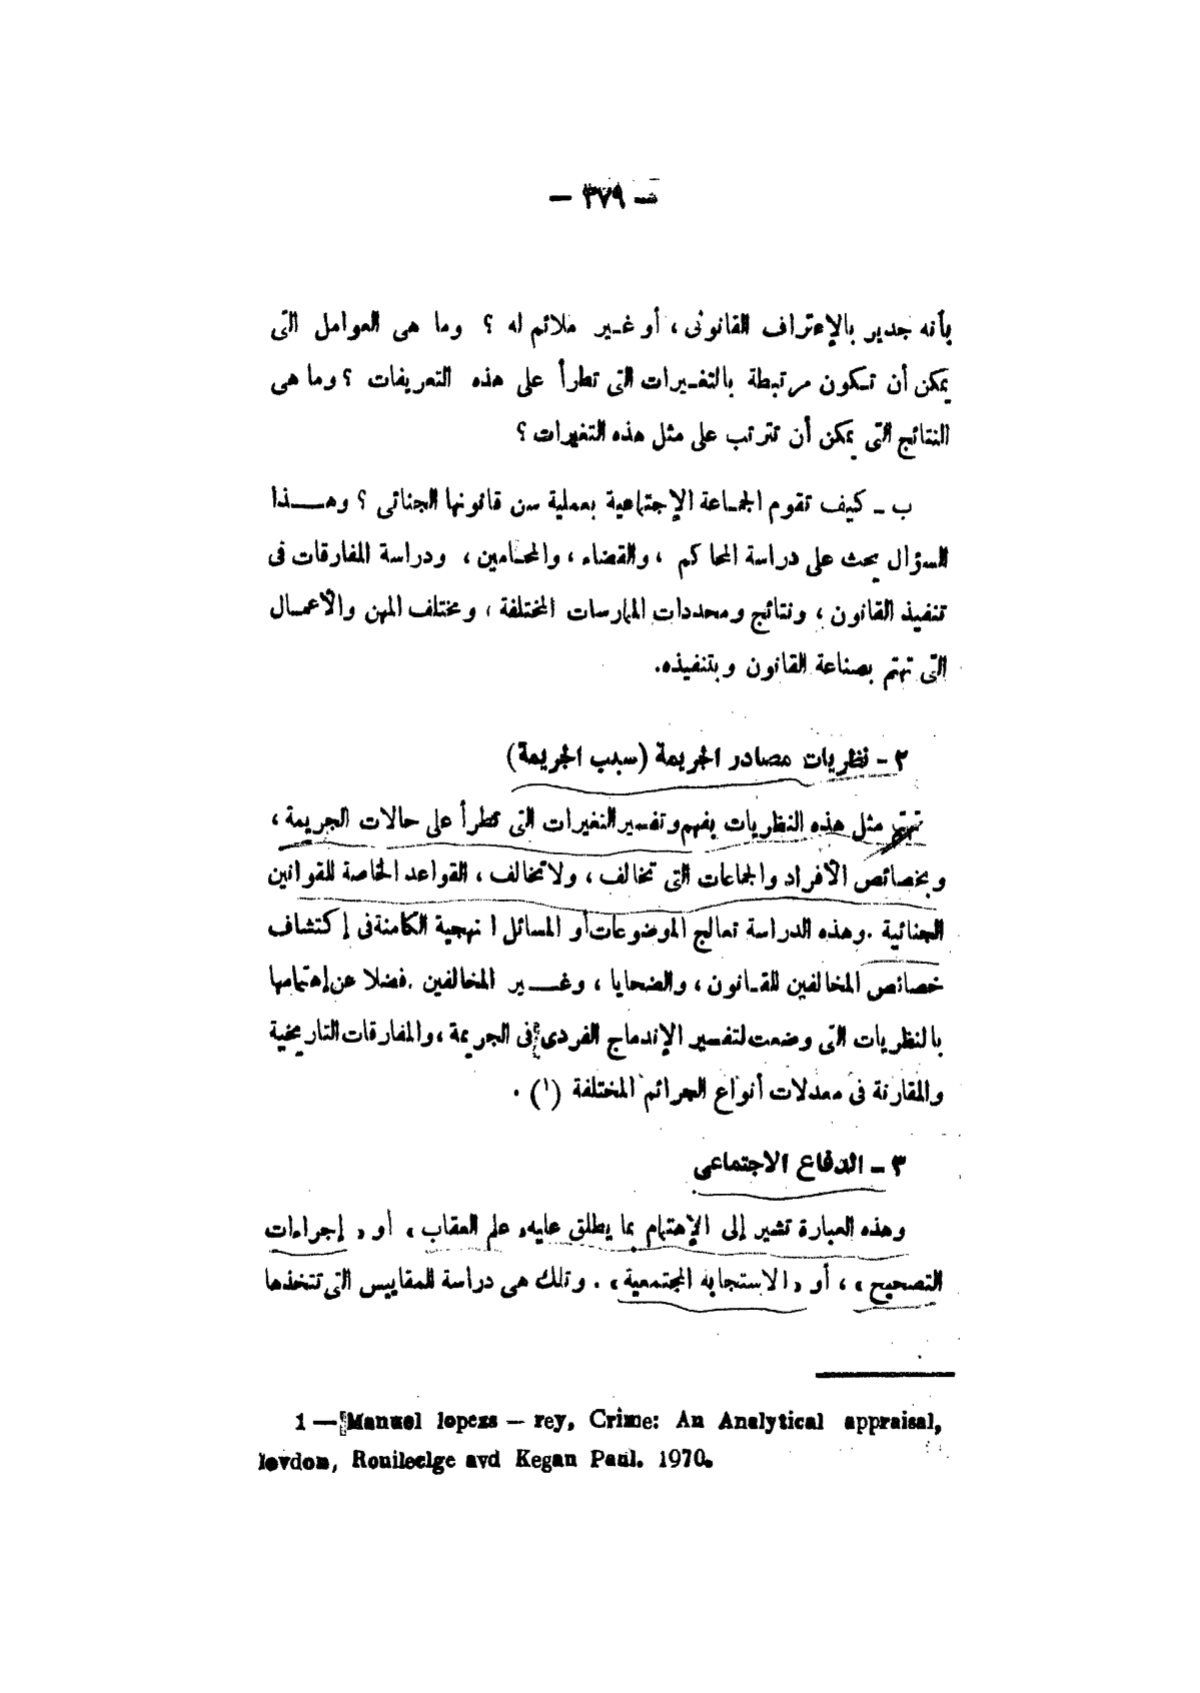 — ٣٧٩ —
بأنه جدير بالإعتراف القانونى ، أو غير ملائم له ؟ وما هى العوامل التى
يمكن أن تكون مرتبطة بالتغيرات التى تطرأ على هذه التعريفات ؟ وما هى
النتائج التى يمكن أن تترتب على مثل هذه التغيرات ؟
ب ـ كيف تقوم الجماعة الإجتماعية بعملية سن قانونها الجنائى ؟ وهــذا
السؤال يحث على دراسة المحاكم ، والقضاء ، والمحامين ، ودراسة المفارقات فى
تنفيذ القانون ، ونتائج ومحددات الممارسات المختلفة ، ومختلف المهن والأعمال
التى تهتم بصناعة القانون وبتنفيذه.
٢ - نظريات مصادر الجريمة (سبب الجريمة)
تهتم مثل هذه النظريات بفهم وتفسير التغيرات التى تطرأ على حالات الجريمة ،
وبخصائص الأفراد والجماعات التى تخالف ، ولا تخالف ، القواعد الخاصة للقوانين
الجنائية . وهذه الدراسة تعالج الموضوعات أو المسائل ا نهجية الكامنة فى إكتشاف
خصائص المخالفين للقانون ، والضحايا ، وغــير المخالفين . فضلا عن إهتمامها
بالنظريات التى وضعت لتفسير الإندماج الفردى فى الجريمة ، والمفارقات التاريخية
والمقارنة فى معدلات أنواع الجرائم المختلفة (١) .
٣ ـ الدفاع الاجتماعى
وهذه العبارة تشير إلى الإهتمام بما يطلق عليه « علم العقاب ، أو « إجراءات
التصحيح » ، أو « الاستجابه المجتمعية » . وتلك هى دراسة للمقاييس التى تتخذها
1 — Manuel lopezs — rey, Crime: An Analytical appraisal,
lovdon, Rouileclge avd Kegan Paul. 1970.